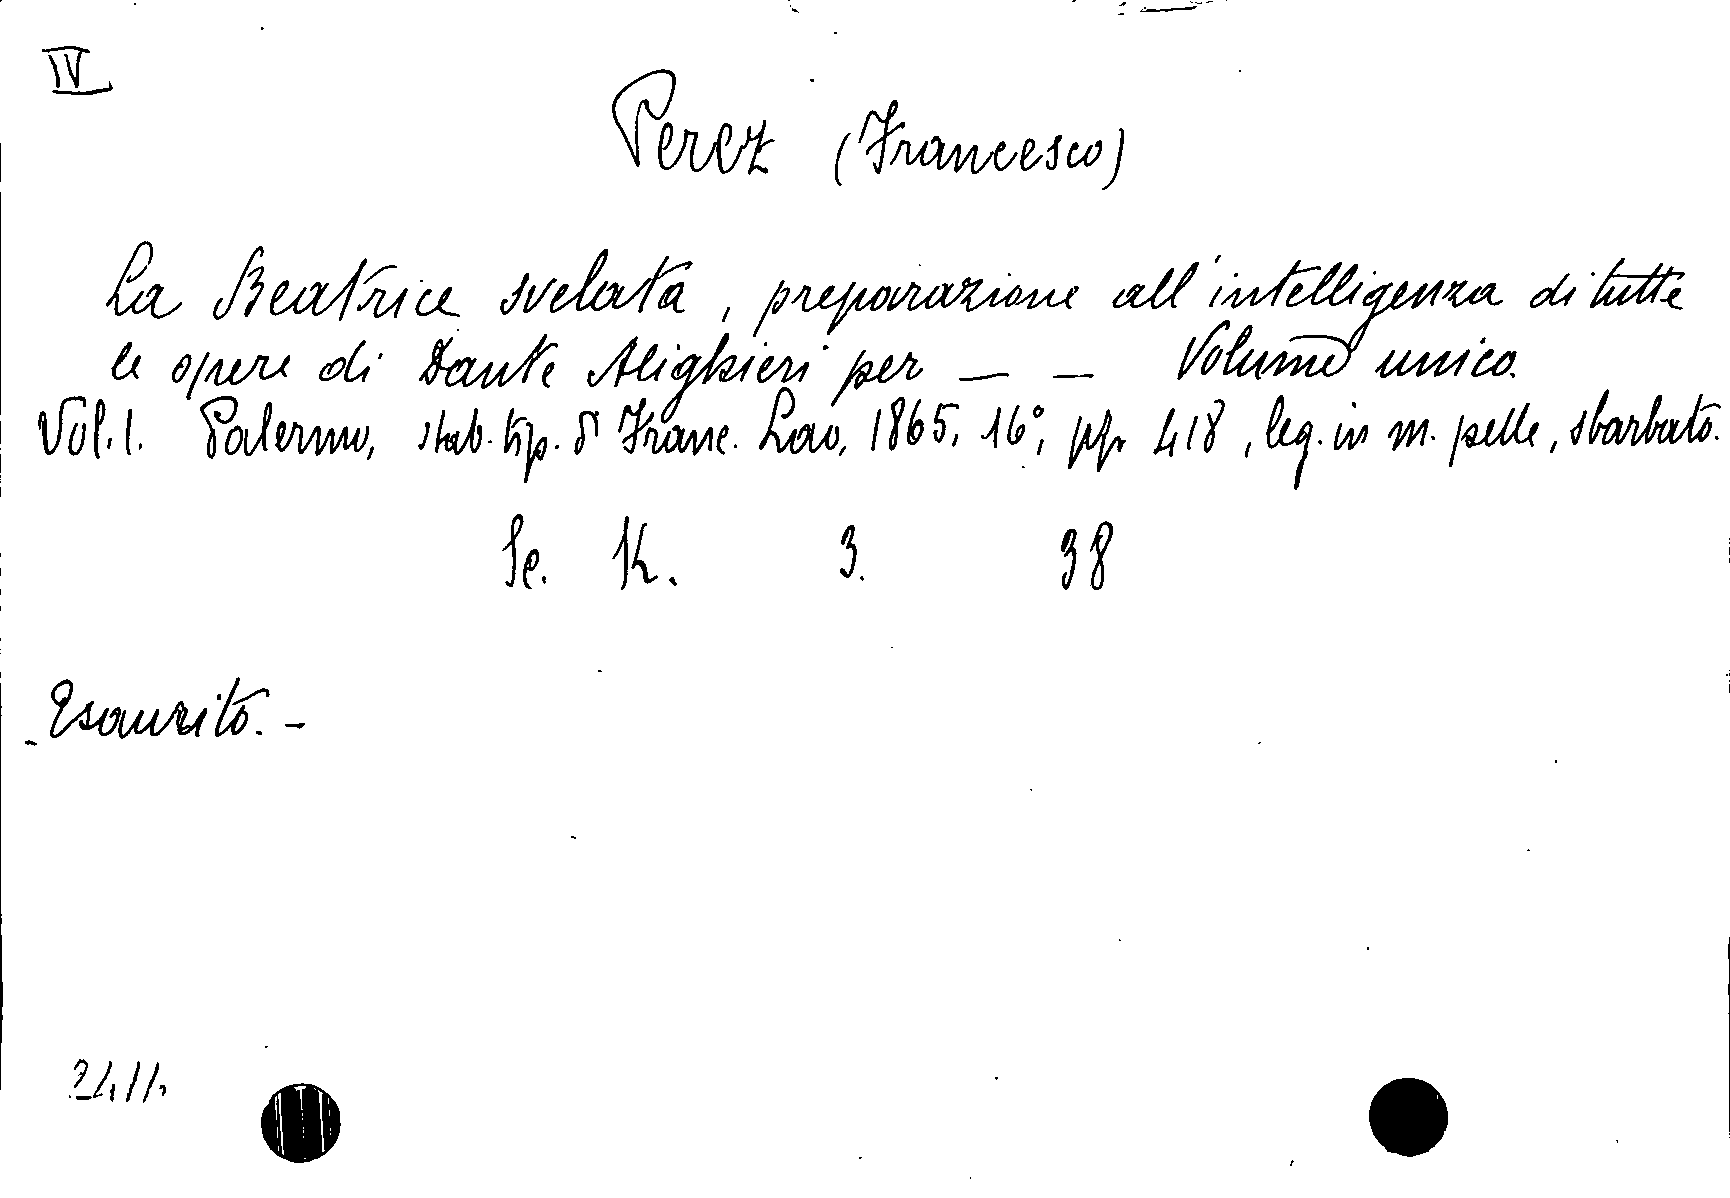 IV
Perez (Francesco)
La Beatrice svelata, preparazione all'intelligenza di tutte
le opere di Dante Alighieri per _ _ Volume unico.
Vol. 1. Palermo, stab. tip. di Franc. Lao, 1865, 16°, pp. 418, leg. in m. pelle, sbarbato.
Se. K. 3. 38
Esaurito. -